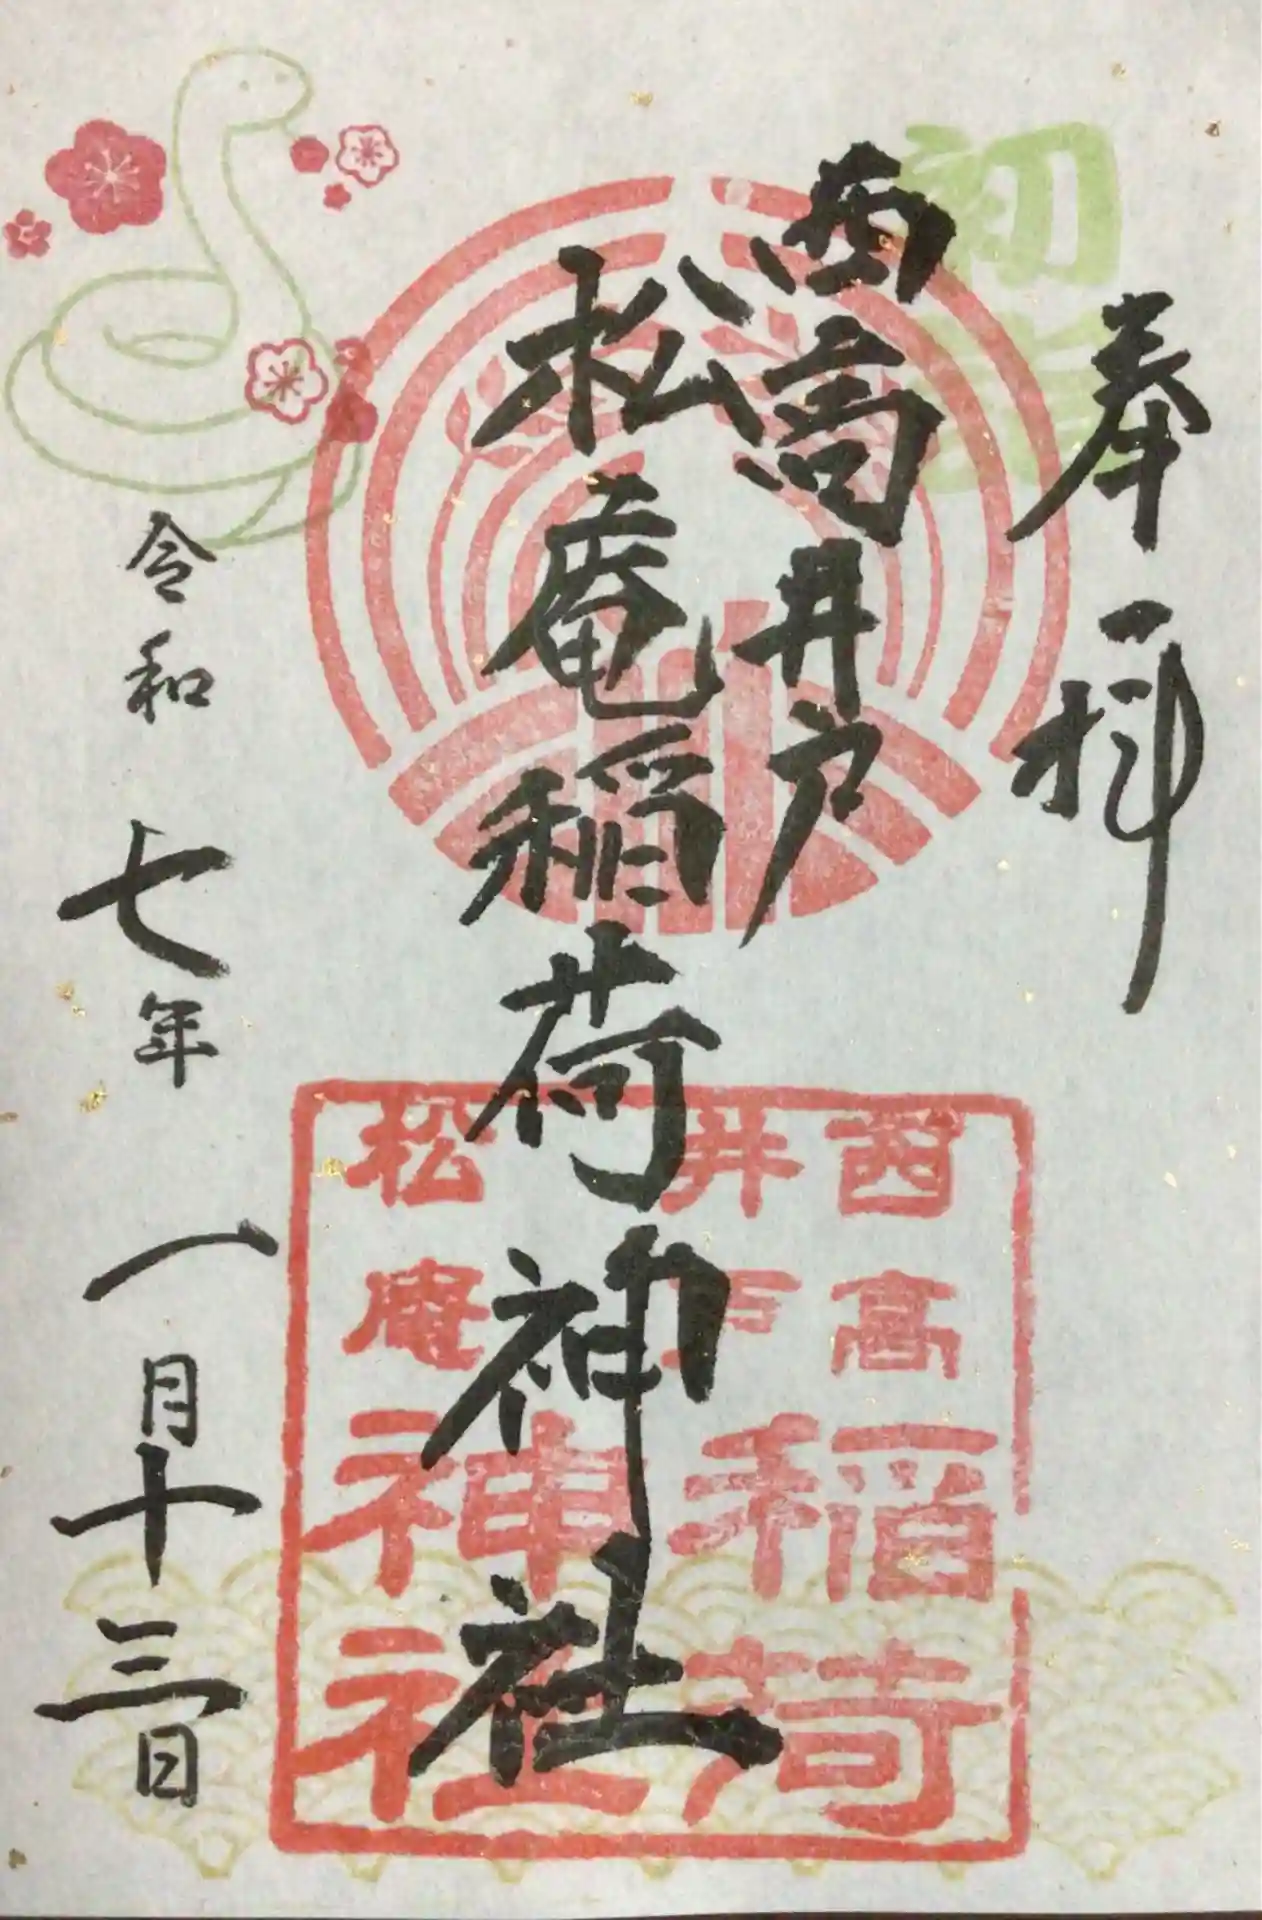 初詣
奉拝
西高井戸
松庵稲荷神社
令和七年一月十三日
西高
井戸
稲荷
松庵
神社